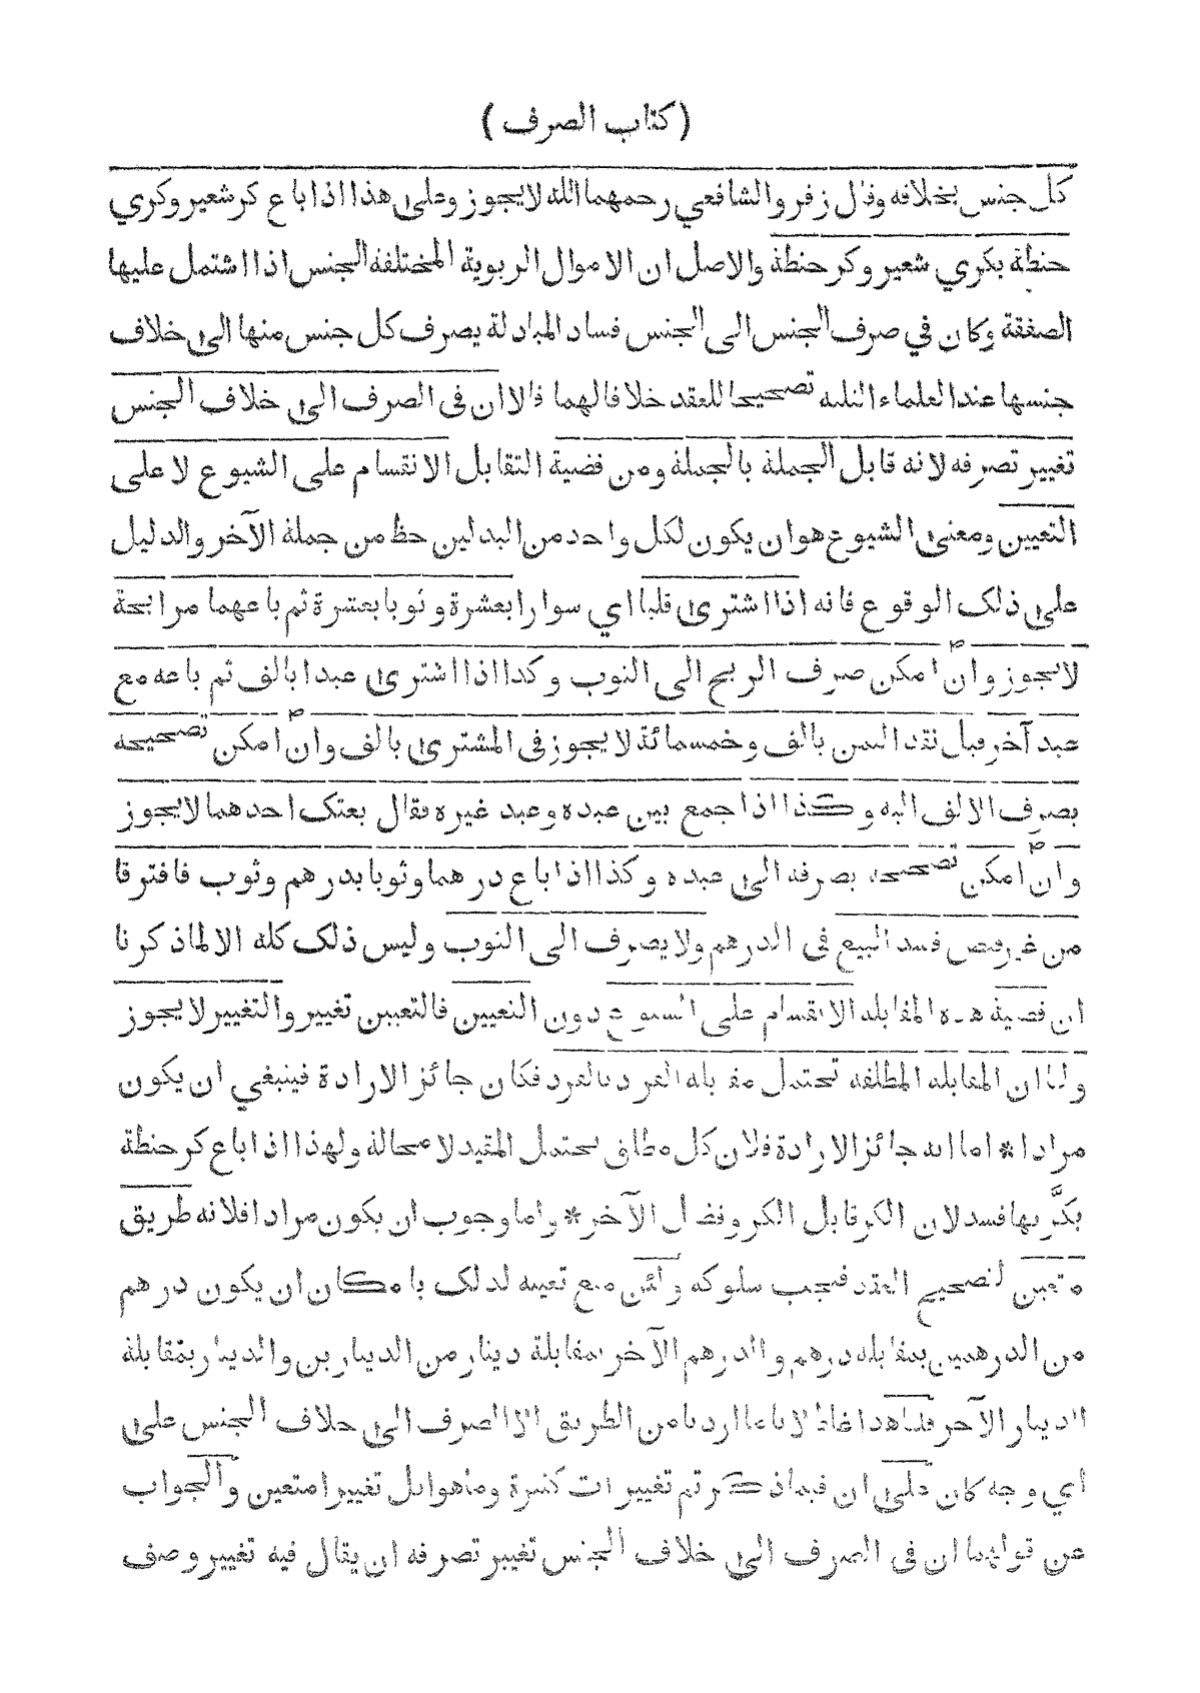 (كتاب الصرف)
كل جنس بخلافه وقال زفر والشافعي رحمهما الله لا يجوز وعلى هذا اذا باع كر شعير وكري
حنطة بكري شعير وكر حنطة والاصل ان الاموال الربوية المختلفة الجنس اذا اشتمل عليها
الصفقة وكان في صرف الجنس الى الجنس فساد المبادلة يصرف كل جنس منها الى خلاف
جنسها عند العلماء الثلثه تصحيحا للعقد خلافا لهما قالا ان فى الصرف الى خلاف الجنس
تغيير تصرفه لانه قابل الجملة بالجملة ومن قضية التقابل الانقسام على الشيوع لا على
التعيين ومعنى الشيوع هو ان يكون لكل واحد من البدلين حظ من جملة الآخر والدليل
على ذلك الوقوع فانه اذا اشترى قلبا اي سوارا بعشرة وثوبا بعشرة ثم باعهما مرابحة
لا يجوز وان امكن صرف الربح الى الثوب وكذا اذا اشترى عبدا بالف ثم باعه مع
عبد آخر قبل نقد الثمن بالف وخمسمائة لا يجوز فى المشترى بالف وان امكن تصحيحه
بصرف الالف اليه وكذا اذا جمع بين عبده وعبد غيره فقال بعتك احدهما لا يجوز
وان امكن تصحيحه بصرفه الى عبده وكذا اذا باع درهما وثوبا بدرهم وثوب فافترقا
من غير قبض فسد البيع فى الدرهم ولا يصرف الى الثوب وليس ذلك كله الا لما ذكرنا
ان قضية هذه المقابلة الانقسام على الشيوع دون التعيين فالتعيين تغيير والتغيير لا يجوز
ولنا ان المقابله المطلقه تحتمل مقابلة الفرد بالفرد فكان جائز الارادة فينبغي ان يكون
مرادا * اما انه جائز الارادة فلان كل مطلق يحتمل المقيد لا محالة ولهذا اذا باع كر حنطة
بكريها فسد لان الكر قابل الكر وفضل الآخر * واما وجوب ان يكون مرادا فلانه طريق
متعين لتصحيح العقد فيجب سلوكه ولئن منع تعينه لذلك بامكان ان يكون درهم
من الدرهمين بمقابلة درهم والدرهم الآخر بمقابلة دينار من الدينارين والدينار بمقابلة
الدينار الآخر قلنا هذا غلط لانا ما اردنا من الطريق الا الصرف الى خلاف الجنس على
اي وجه كان على ان فيما ذكر تم تغييرات كثيرة وما هو اقل تغييرا متعين والجواب
عن قولهما ان فى الصرف الى خلاف الجنس تغيير تصرفه ان يقال فيه تغيير وصف